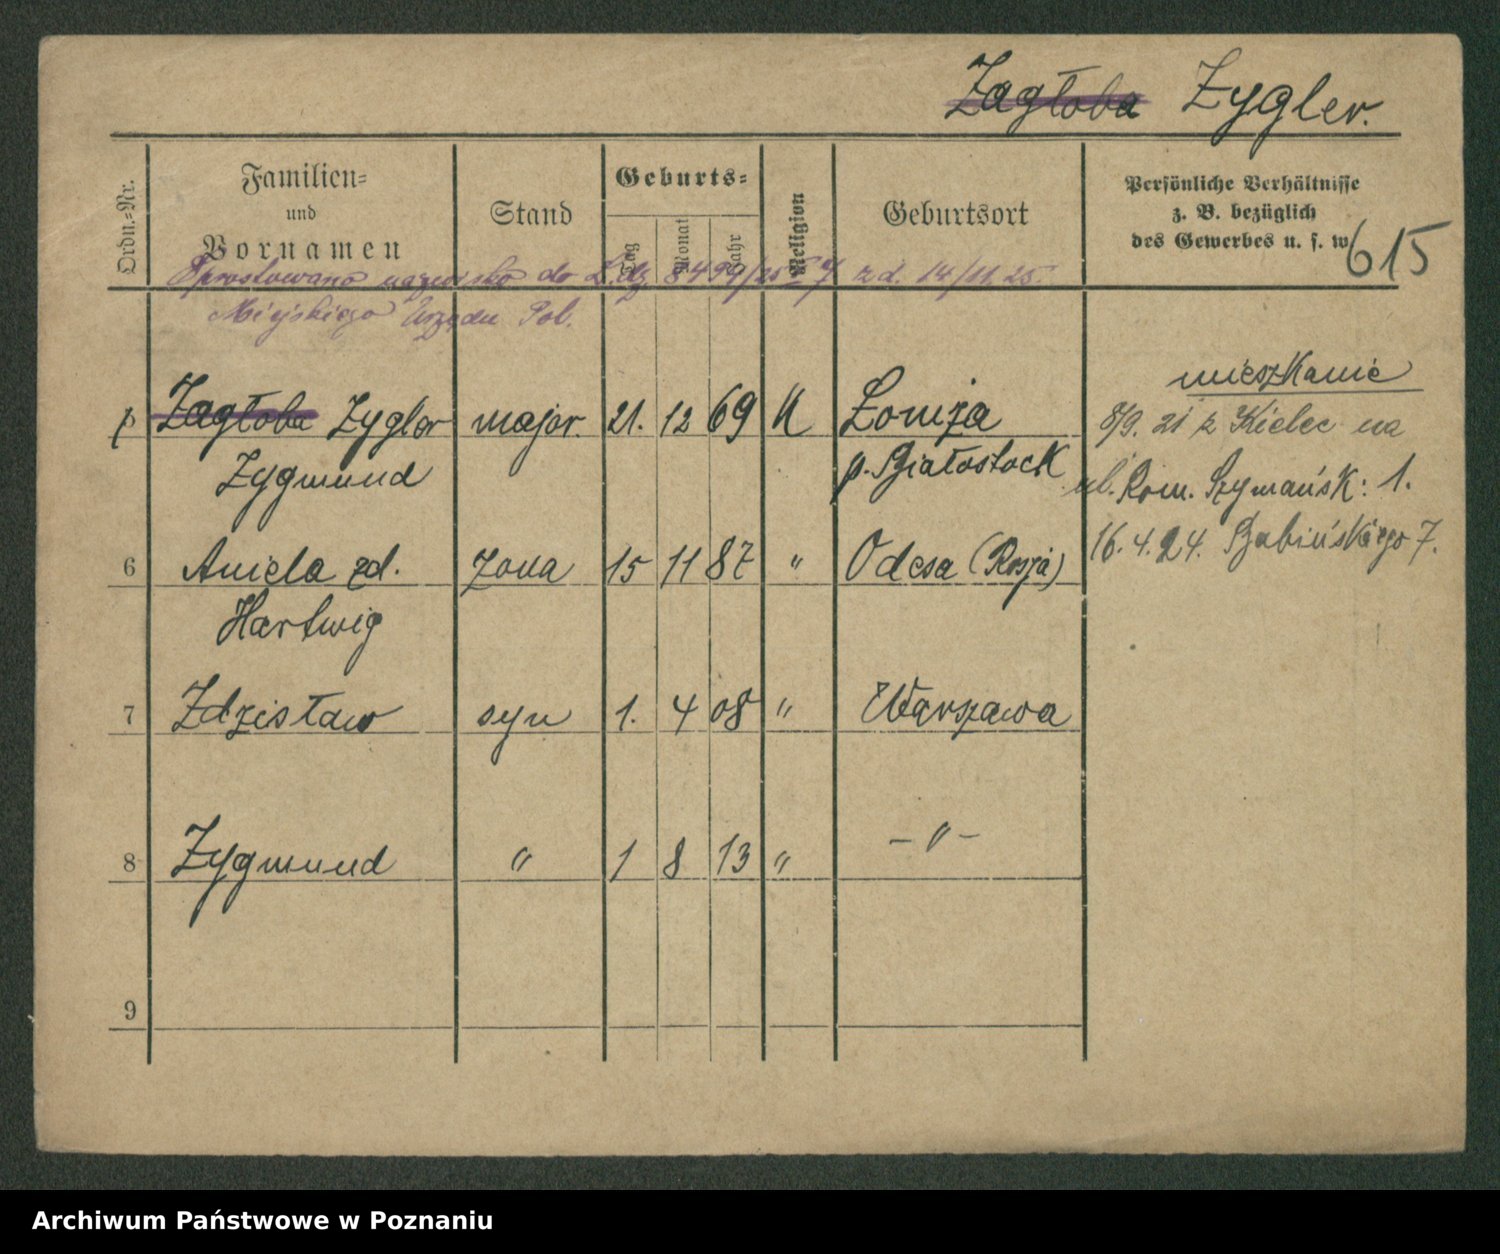 Zagłoba Zygler.
Ordn.-Nr.
Familien-
und
Vornamen
Stand
Geburts-
Tag
Monat
Jahr
Religion
Geburtsort
Persönliche Verhältnisse
z. B. bezüglich
des Gewerbes u. s. w.
615
Sprostowano nazwisko do L. dz. 8499/25 z d. 14/11.25.
Miejskiego Urzędu Pol.
mieszkanie
Zagłoba Zygler major. 21. 12 69 K Łomża 8/9. 21 z Kielec na
Zygmund p. Białostock ul. Rom. Szymańsk: 1.
6 Aniela zd. żona 15 11 87 " Odesa (Rosja) 16. 4. 24. Babińskiego 7.
Hartwig
7 Zdzisław syn 1. 4 08 " Warszawa
8 Zygmund " 1 8 13 " - " -
9
Archiwum Państwowe w Poznaniu